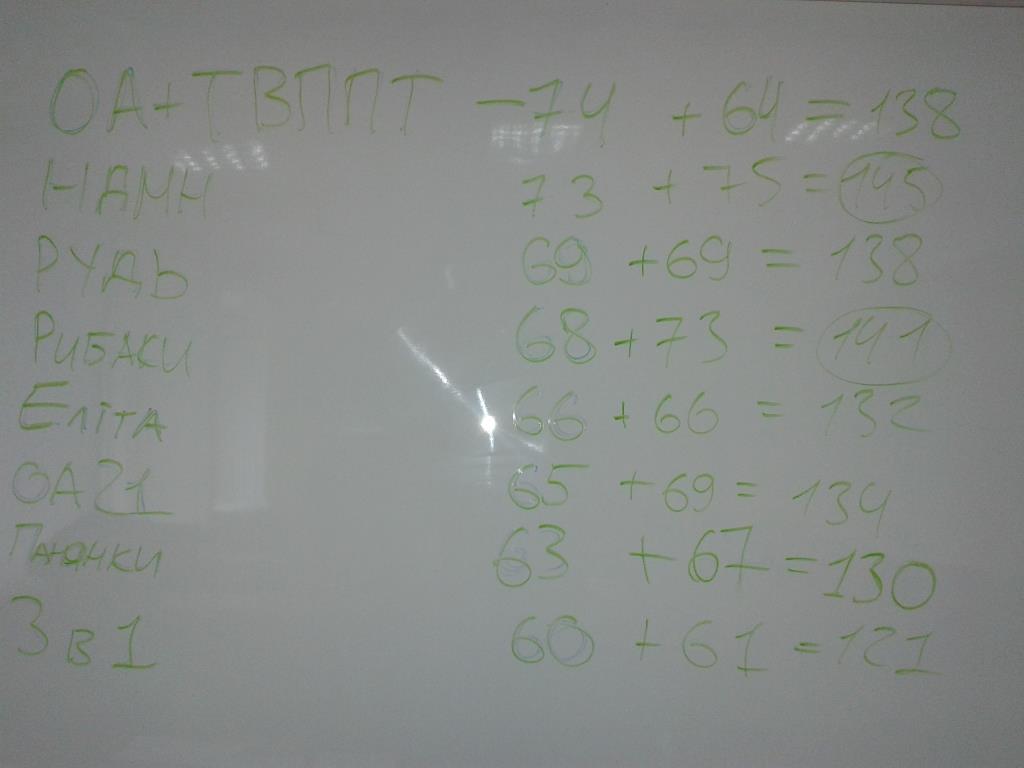 ОА+ТВППТ – 74 + 64 = 138
НАМН 73 + 75 = 145
РУДЬ 69 + 69 = 138
РИБАКИ 68 + 73 = 141
Еліта 66 + 66 = 132
ОА21 65 + 69 = 134
63 + 67 = 130
3 в 1 60 + 61 = 121